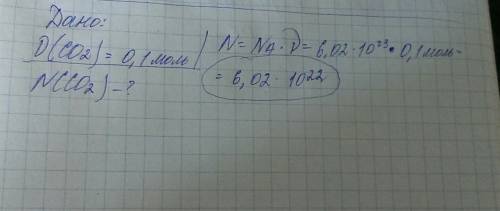 Дано:
D(CO2) = 0,1 моль
N(CO2) - ?
N = NA · D = 6,02 · 10²³ · 0,1 моль =
= 6,02 · 10²²